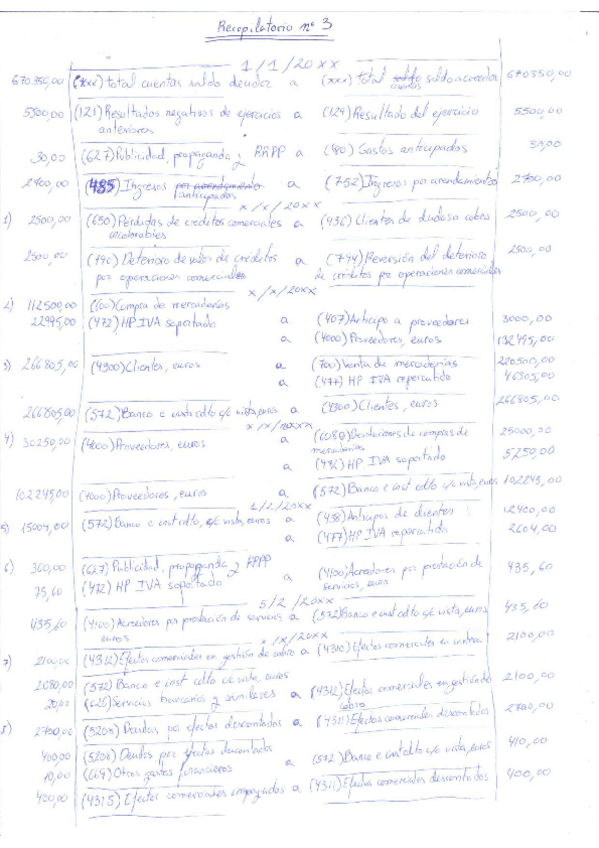 Recopilatorio nº 3
1/1/20xx
670350,00 (xxx) total cuentas saldo deudor a (xxx) total cuentas saldo acreedor 670350,00
5500,00 (121) Resultados negativos de ejercicios a (129) Resultado del ejercicio 5500,00
anteriores
30,00 (627) Publicidad, propaganda y RRPP a (480) Gastos anticipados 30,00
2400,00 (485) Ingresos anticipados a (752) Ingresos por arrendamientos
x/x/20xx
1) 2500,00 (650) Pérdidas de creditos comerciales a (436) Clientes de dudoso cobro 2500,00
incobrables
2500,00 (490) Deterioro de valor de créditos a (794) Reversión del deterioro 2500,00
por operaciones comerciales de créditos por operaciones comerciales
x/x/20xx
2) 112500,00 (600) Compra de mercaderías
22995,00 (472) HP IVA soportado a (407) Anticipo a proveedores 3000,00
a (4000) Proveedores, euros 132495,00
3) 266805,00 (4300) Clientes, euros a (700) Venta de mercaderías 220500,00
a (477) HP IVA repercutido 46305,00
266805,00 (572) Banco e inst cdto c/c vista, euros a (4300) Clientes, euros 266805,00
x/x/20xx
4) 30250,00 (4000) Proveedores, euros a (6080) Devoluciones de compras de 25000,00
mercaderías
a (472) HP IVA soportado 5250,00
102245,00 (4000) Proveedores, euros a (572) Banco e inst cdto c/c vista, euros 102245,00
1/2/20xx
5) 15004,00 (572) Banco e inst cdto, c/c vista, euros a (438) Anticipos de clientes 12400,00
a (477) HP IVA repercutido 2604,00
6) 360,00 (627) Publicidad, propaganda y RRPP
75,60 (472) HP IVA soportado a (4100) Acreedores por prestación de 435,60
servicios, euros
5/2/20xx
435,60 (4100) Acreedores por prestación de servicios a (572) Banco e inst cdto c/c vista, euros 435,60
euros
x/x/20xx
7) 2100,00 (4312) Efectos comerciales en gestión de cobro a (4310) Efectos comerciales en cartera 2100,00
2080,00 (572) Banco e inst cdto c/c vista, euros
20,00 (626) Servicios bancarios y similares a (4312) Efectos comerciales en gestión de 2100,00
cobro
8) 2700,00 (5208) Deudas por efectos descontados a (4311) Efectos comerciales descontados 2700,00
400,00 (5208) Deudas por efectos descontados
10,00 (669) Otros gastos financieros a (572) Banco e inst cdto c/c vista, euros 410,00
400,00 (4315) Efectos comerciales impagados a (4311) Efectos comerciales descontados 400,00